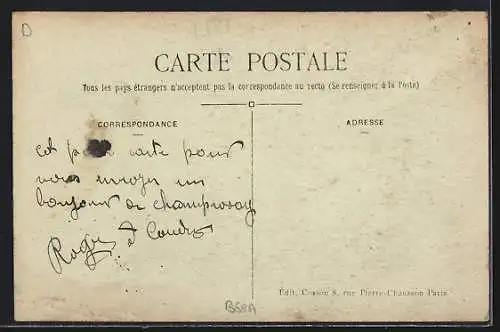 D
CARTE POSTALE
Tous les pays étrangers n'acceptent pas la correspondance au recto (Se renseigner à la Poste)
CORRESPONDANCE
ADRESSE
carte pour
vous envoyer un
bonjour de Champrosay
Roger
Édit. Cosson 8, rue Pierre-Chausson Paris